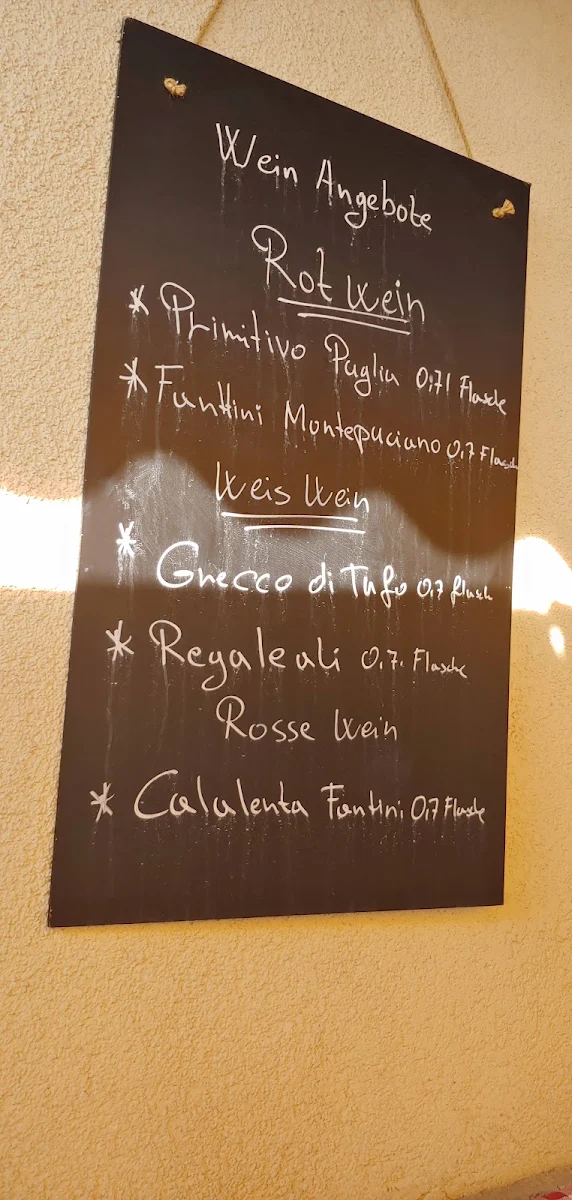 Wein Angebote
Rot Wein
* Primitivo Puglia 0,7l Flasche
* Funttini Montepuciano 0,7 Flasch
Weis Wein
* Grecco di Tufo 0,7 flasch
* Regaleali 0,7. Flasche
Rosse Wein
* Calalenta Fantini 0,7 Flasche